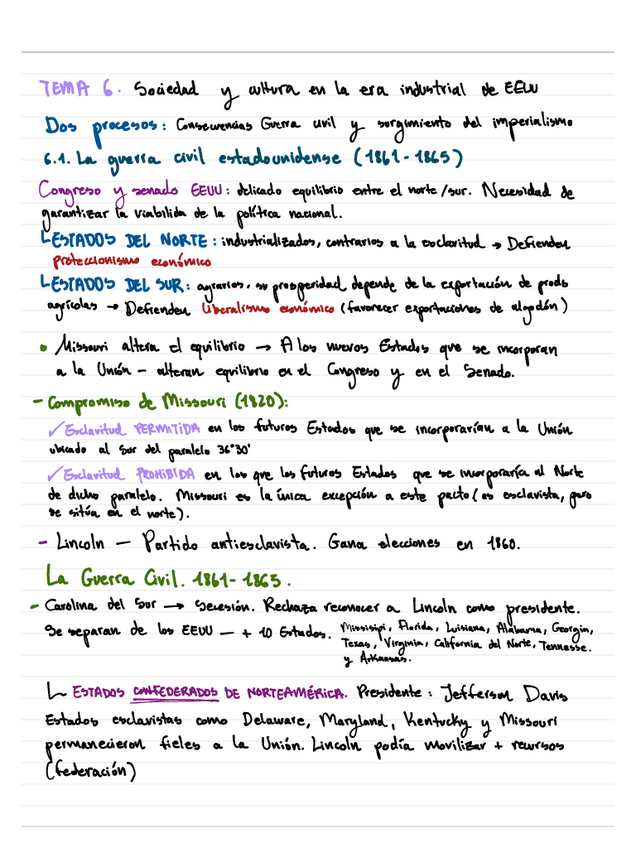 TEMA 6. Sociedad y cultura en la era industrial de EEUU
Dos procesos: Consecuencias Guerra civil y surgimiento del imperialismo
6.1. La guerra civil estadounidense (1861-1865)
Congreso y senado EEUU: delicado equilibrio entre el norte/sur. Necesidad de
garantizar la viabilida de la política nacional.
↳ESTADOS DEL NORTE: industrializados, contrarios a la esclavitud → Defienden
proteccionismo económico
↳ESTADOS DEL SUR: agrarios, su prosperidad depende de la exportación de prods
agrícolas → Defienden liberalismo económico (favorecer exportaciones de algodón)
• Missouri altera el equilibrio → A los nuevos Estados que se incorporan
a la Unión - alteran equilibrio en el Congreso y en el Senado.
- Compromiso de Missouri (1820):
✓ Esclavitud PERMITIDA en los futuros Estados que se incorporarían a la Unión
ubicado al Sur del paralelo 36°30'
✓ Esclavitud PROHIBIDA en los que los futuros Estados que se incorporaría al Norte
de dicho paralelo. Missouri es la única excepción a este pacto (es esclavista, pero
se sitúa en el norte).
- Lincoln — Partido antiesclavista. Gana elecciones en 1860.
La Guerra Civil. 1861-1865.
- Carolina del Sur → Secesión. Rechaza reconocer a Lincoln como presidente.
Se separan de los EEUU — + 10 Estados. Missisipi, Florida, Luisiana, Alabama, Georgia,
Texas, Virginia, California del Norte, Tennesse.
y Arkansas.
↳ ESTADOS CONFEDERADOS DE NORTEAMÉRICA. Presidente: Jefferson Davis
Estados esclavistas como Delaware, Maryland, Kentucky y Missouri
permanecieron fieles a la Unión. Lincoln podía movilizar + recursos
(federación)